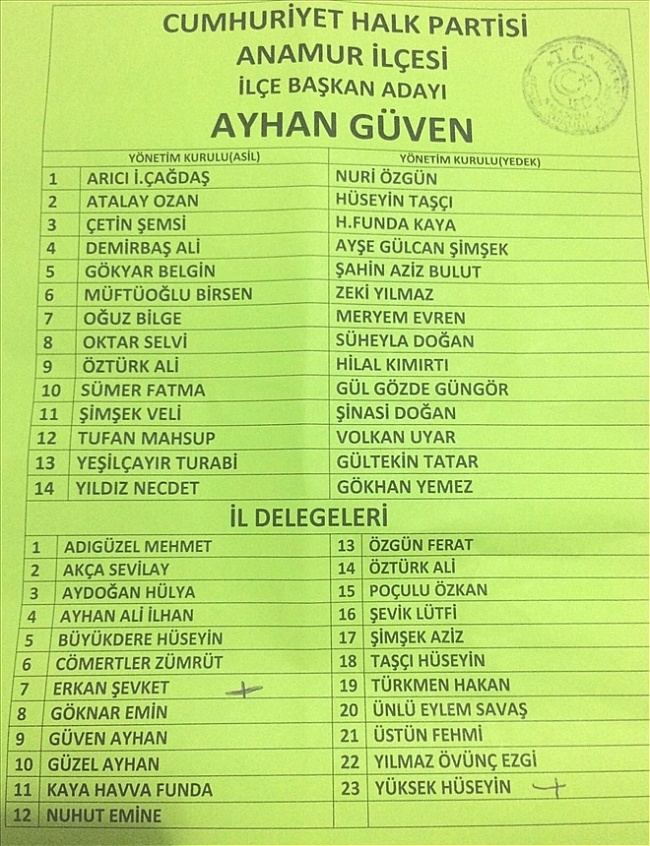 CUMHURİYET HALK PARTİSİ
ANAMUR İLÇESİ
İLÇE BAŞKAN ADAYI
AYHAN GÜVEN
T.C.
YÖNETİM KURULU(ASİL) YÖNETİM KURULU(YEDEK)
1 ARICI İ.ÇAĞDAŞ NURİ ÖZGÜN
2 ATALAY OZAN HÜSEYİN TAŞÇI
3 ÇETİN ŞEMSİ H.FUNDA KAYA
4 DEMİRBAŞ ALİ AYŞE GÜLCAN ŞİMŞEK
5 GÖKYAR BELGİN ŞAHİN AZİZ BULUT
6 MÜFTÜOĞLU BİRSEN ZEKİ YILMAZ
7 OĞUZ BİLGE MERYEM EVREN
8 OKTAR SELVİ SÜHEYLA DOĞAN
9 ÖZTÜRK ALİ HİLAL KIMIRTI
10 SÜMER FATMA GÜL GÖZDE GÜNGÖR
11 ŞİMŞEK VELİ ŞİNASİ DOĞAN
12 TUFAN MAHSUP VOLKAN UYAR
13 YEŞİLÇAYIR TURABİ GÜLTEKİN TATAR
14 YILDIZ NECDET GÖKHAN YEMEZ
İL DELEGELERİ
1 ADIGÜZEL MEHMET 13 ÖZGÜN FERAT
2 AKÇA SEVİLAY 14 ÖZTÜRK ALİ
3 AYDOĞAN HÜLYA 15 POÇULU ÖZKAN
4 AYHAN ALİ İLHAN 16 ŞEVİK LÜTFİ
5 BÜYÜKDERE HÜSEYİN 17 ŞİMŞEK AZİZ
6 CÖMERTLER ZÜMRÜT 18 TAŞÇI HÜSEYİN
7 ERKAN ŞEVKET 19 TÜRKMEN HAKAN
8 GÖKNAR EMİN 20 ÜNLÜ EYLEM SAVAŞ
9 GÜVEN AYHAN 21 ÜSTÜN FEHMİ
10 GÜZEL AYHAN 22 YILMAZ ÖVÜNÇ EZGİ
11 KAYA HAVVA FUNDA 23 YÜKSEK HÜSEYİN
12 NUHUT EMİNE